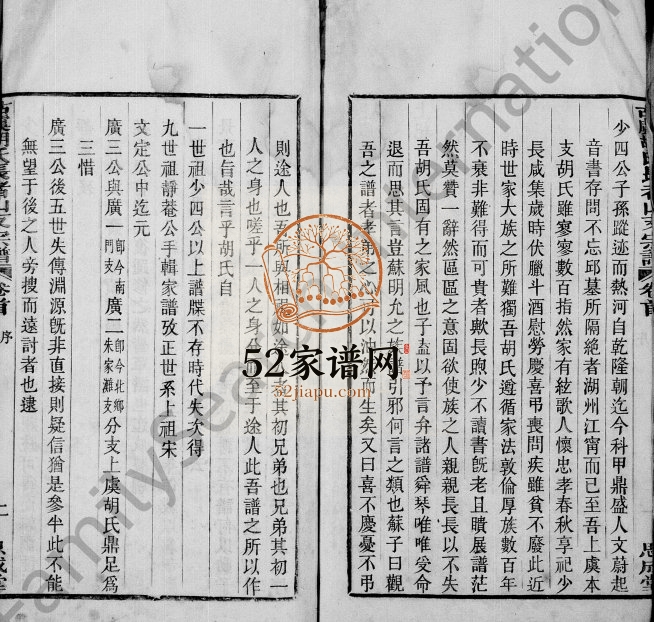 少四公子孫蹤迹而熱河自乾隆朝迄今科甲鼎盛人文蔚起
音書存問不忘邱墓所隔絶者湖州江甯而已至吾上虞本
支胡氏雖寥寥數百指然家有絃歌人懷忠孝春秋享祀少
長咸集歲時伏臘斗酒慰勞慶喜弔喪問疾雖貧不廢此近
時世家大族之所難獨吾胡氏遵循家法敦倫厚族數百年
不衰非難得而可貴者歟長煦少不讀書旣老且聵展譜茫
然莫贊一辭然區區之意固欲使族之人親親長長以不失
吾胡氏固有之家風也子盍以予言弁諸譜舜琴唯唯受命
退而思其言豈蘇明允之族譜引邪何言之類也蘇子曰觀
吾之譜者孝弟之心可以油然而生矣又曰喜不慶憂不弔
則途人也吾所與相視如途人者其初兄弟也兄弟其初一
人之身也嗟乎一人之身分而至于途人此吾譜之所以作
也旨哉言乎胡氏自
一世祖少四公以上譜牒不存時代失次得
九世祖靜菴公手輯家譜攷正世系上祖宋
文定公中迄元
廣三公與廣一卽今南門支廣二卽今北鄉朱家灘支分支上虞胡氏鼎足爲
三惜
廣三公後五世失傳淵源旣非直接則疑信猶是參半此不能
無望于後之人旁搜而遠討者也逮
卷首
序
二
思成堂
52家谱网
52jiapu.com
FamilySearch International